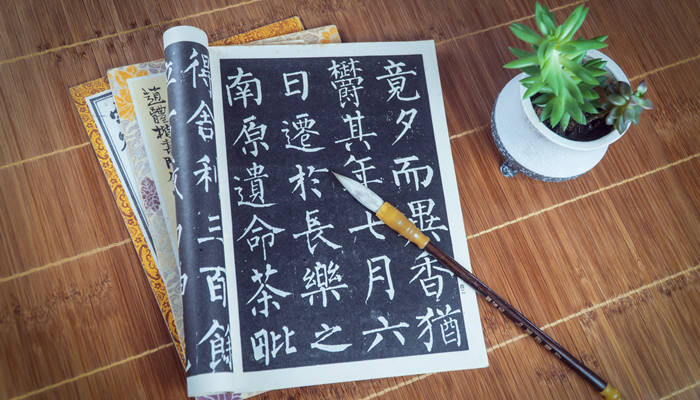 竟夕而異香猶
欝其年七月六
日遷扵長樂之
南原遺命茶毗
得舍利三百餘